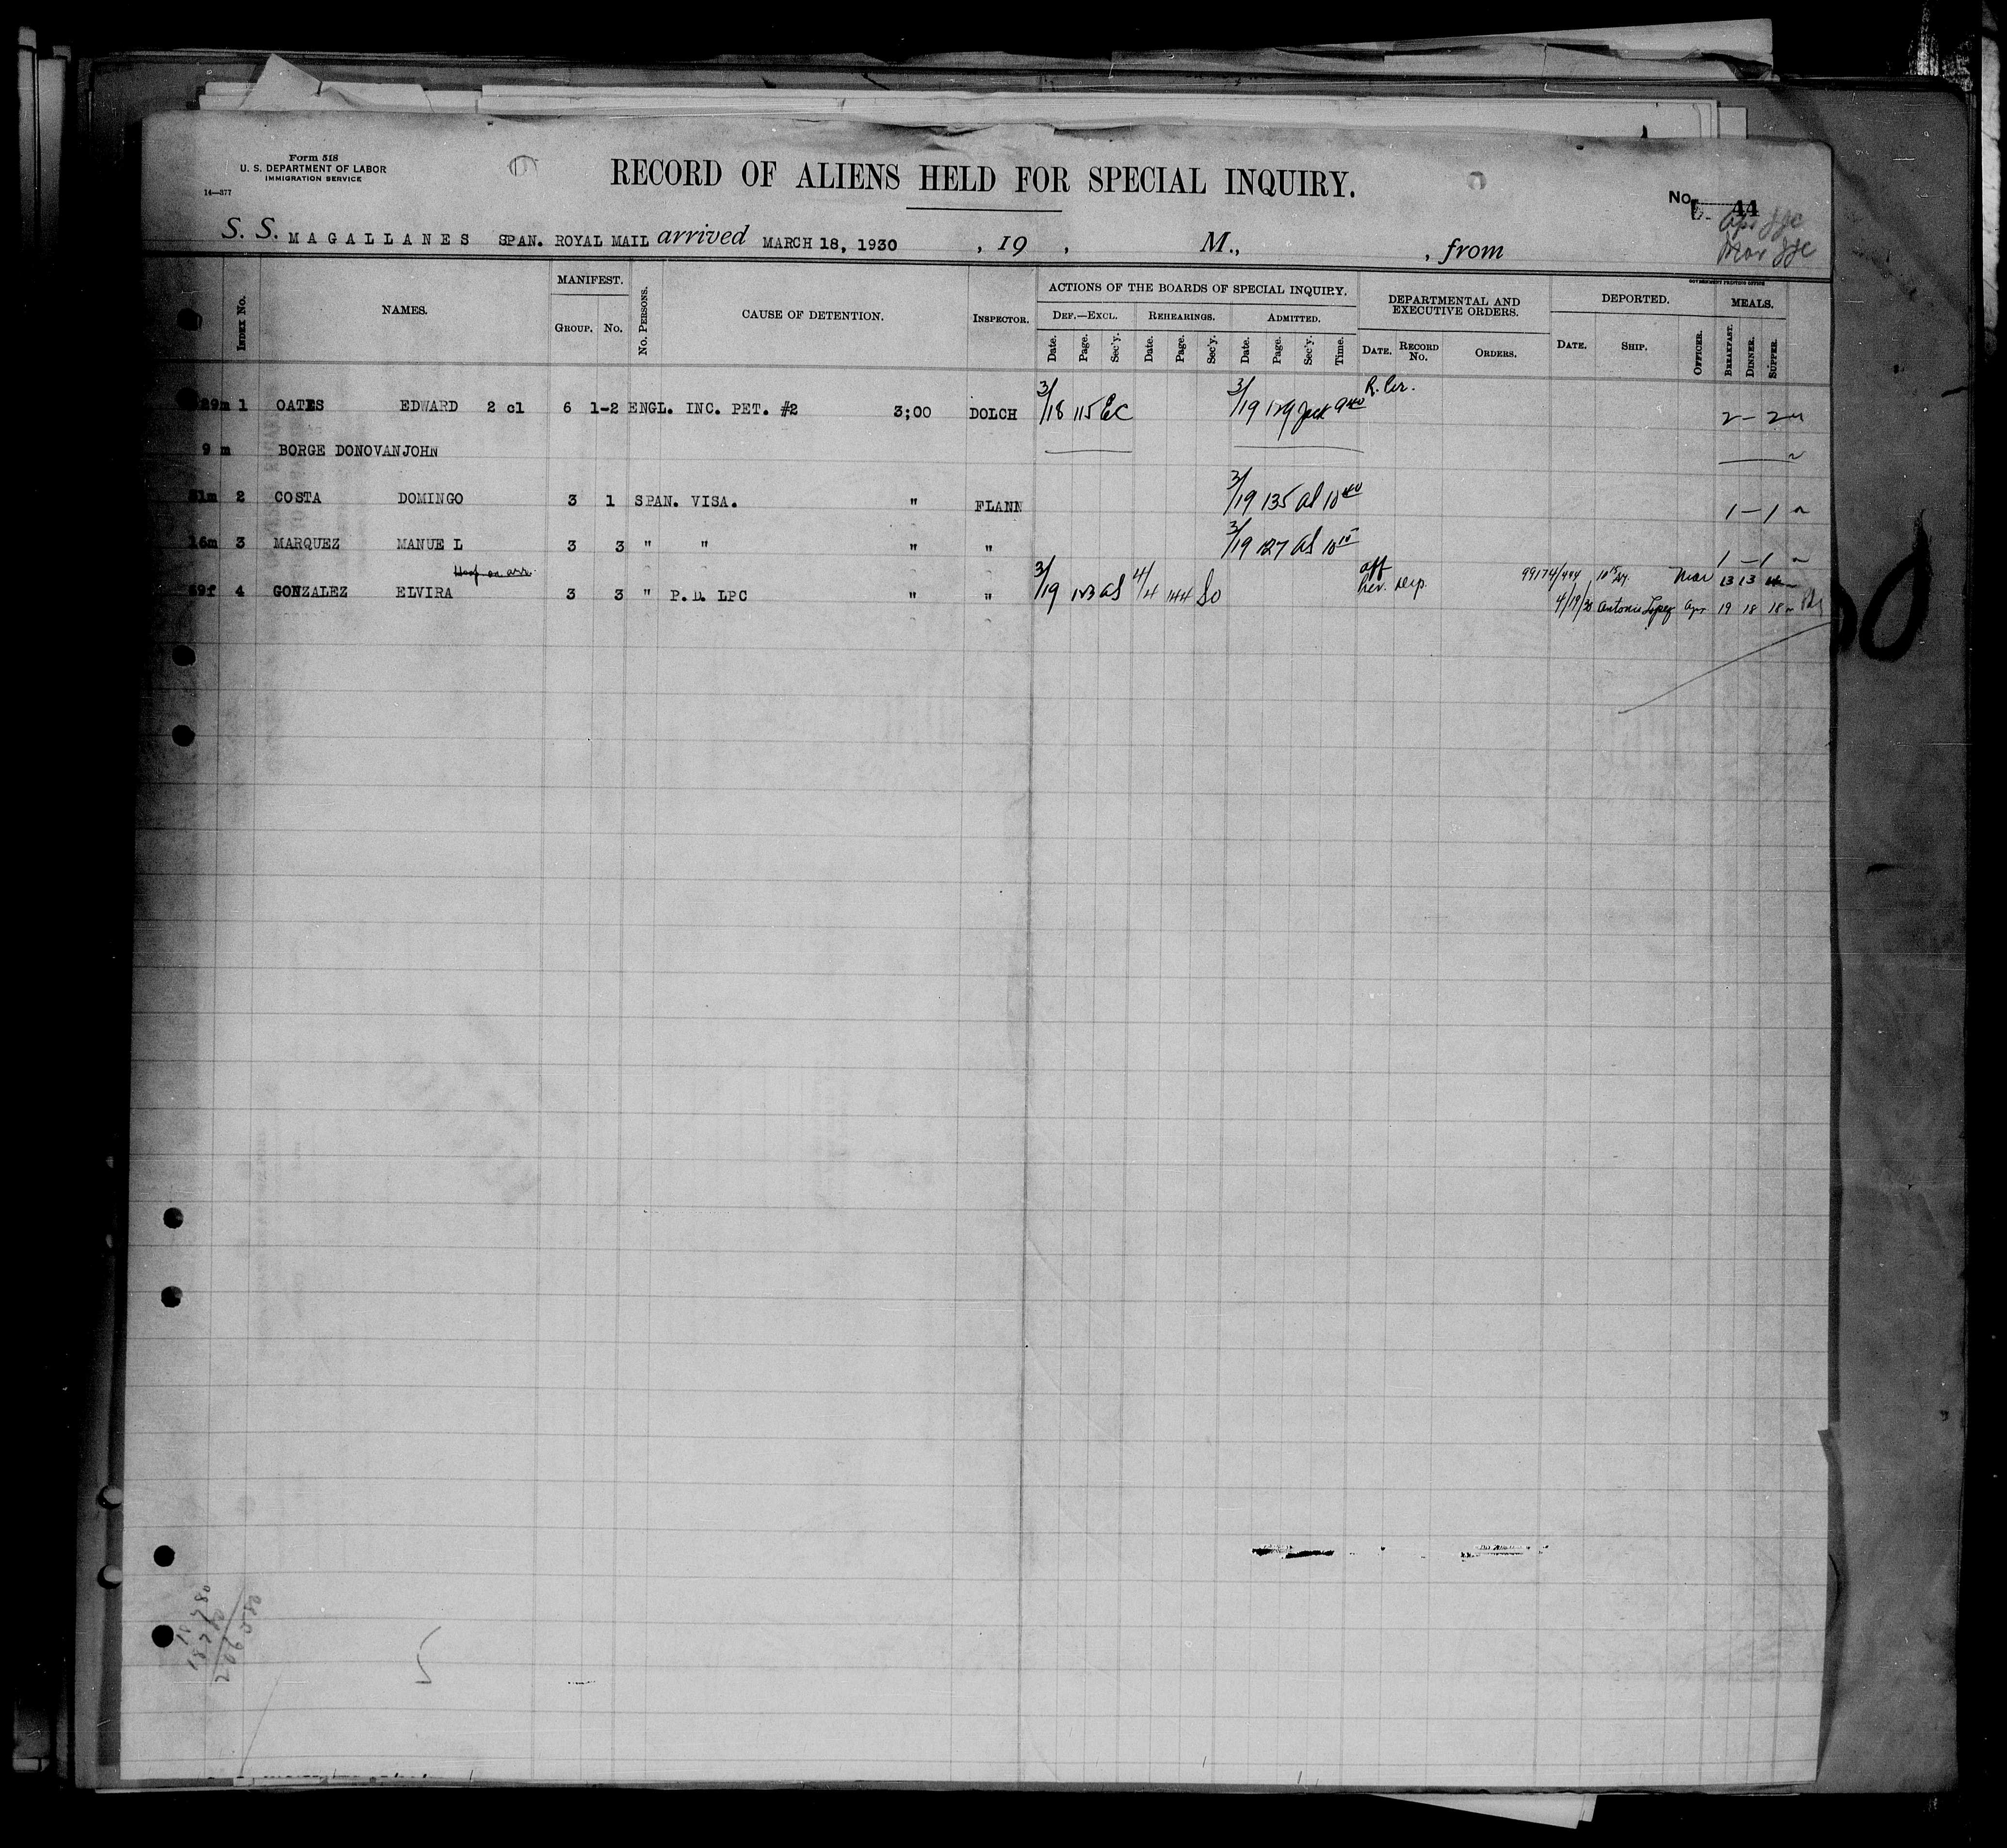 Form 518
U. S. DEPARTMENT OF LABOR
IMMIGRATION SERVICE
14—377
RECORD OF ALIENS HELD FOR SPECIAL INQUIRY.
No. 44
S. S. MAGALLANES SPAN. ROYAL MAIL arrived MARCH 18, 1930 , 19 , M., , from
GOVERNMENT PRINTING OFFICE
INDEX No. NAMES. MANIFEST. GROUP. No. No. PERSONS. CAUSE OF DETENTION. INSPECTOR. ACTIONS OF THE BOARDS OF SPECIAL INQUIRY. DEF.—EXCL. REHEARINGS. ADMITTED. DEPARTMENTAL AND EXECUTIVE ORDERS. DEPORTED. MEALS.
Date. Page. Sec'y. Date. Page. Sec'y. Date. Page. Sec'y. Time. DATE. RECORD No. ORDERS. DATE. SHIP. OFFICER. BREAKFAST. DINNER. SUPPER.
29m 1 OATES EDWARD 2 cl 6 1-2 ENGL. INC. PET. #2 3;00 DOLCH 3/18 115 EC 3/19 129 9 40 2 — 2
9 m BORGE DONOVANJOHN
31m 2 COSTA DOMINGO 3 1 SPAN. VISA. " FLANN 3/19 135 as 10 40 1 — 1
16m 3 MARQUEZ MANUEL 3 3 " " " " 3/19 127 as 10 15 1 — 1
Hosp on arr.
69f 4 GONZALEZ ELVIRA 3 3 " P.D. LPC " " 3/19 123 as 4/4 144 So aff 99174/444 Mar 13 13
4/19/30 Antonio Lopez Apr 19 18 18